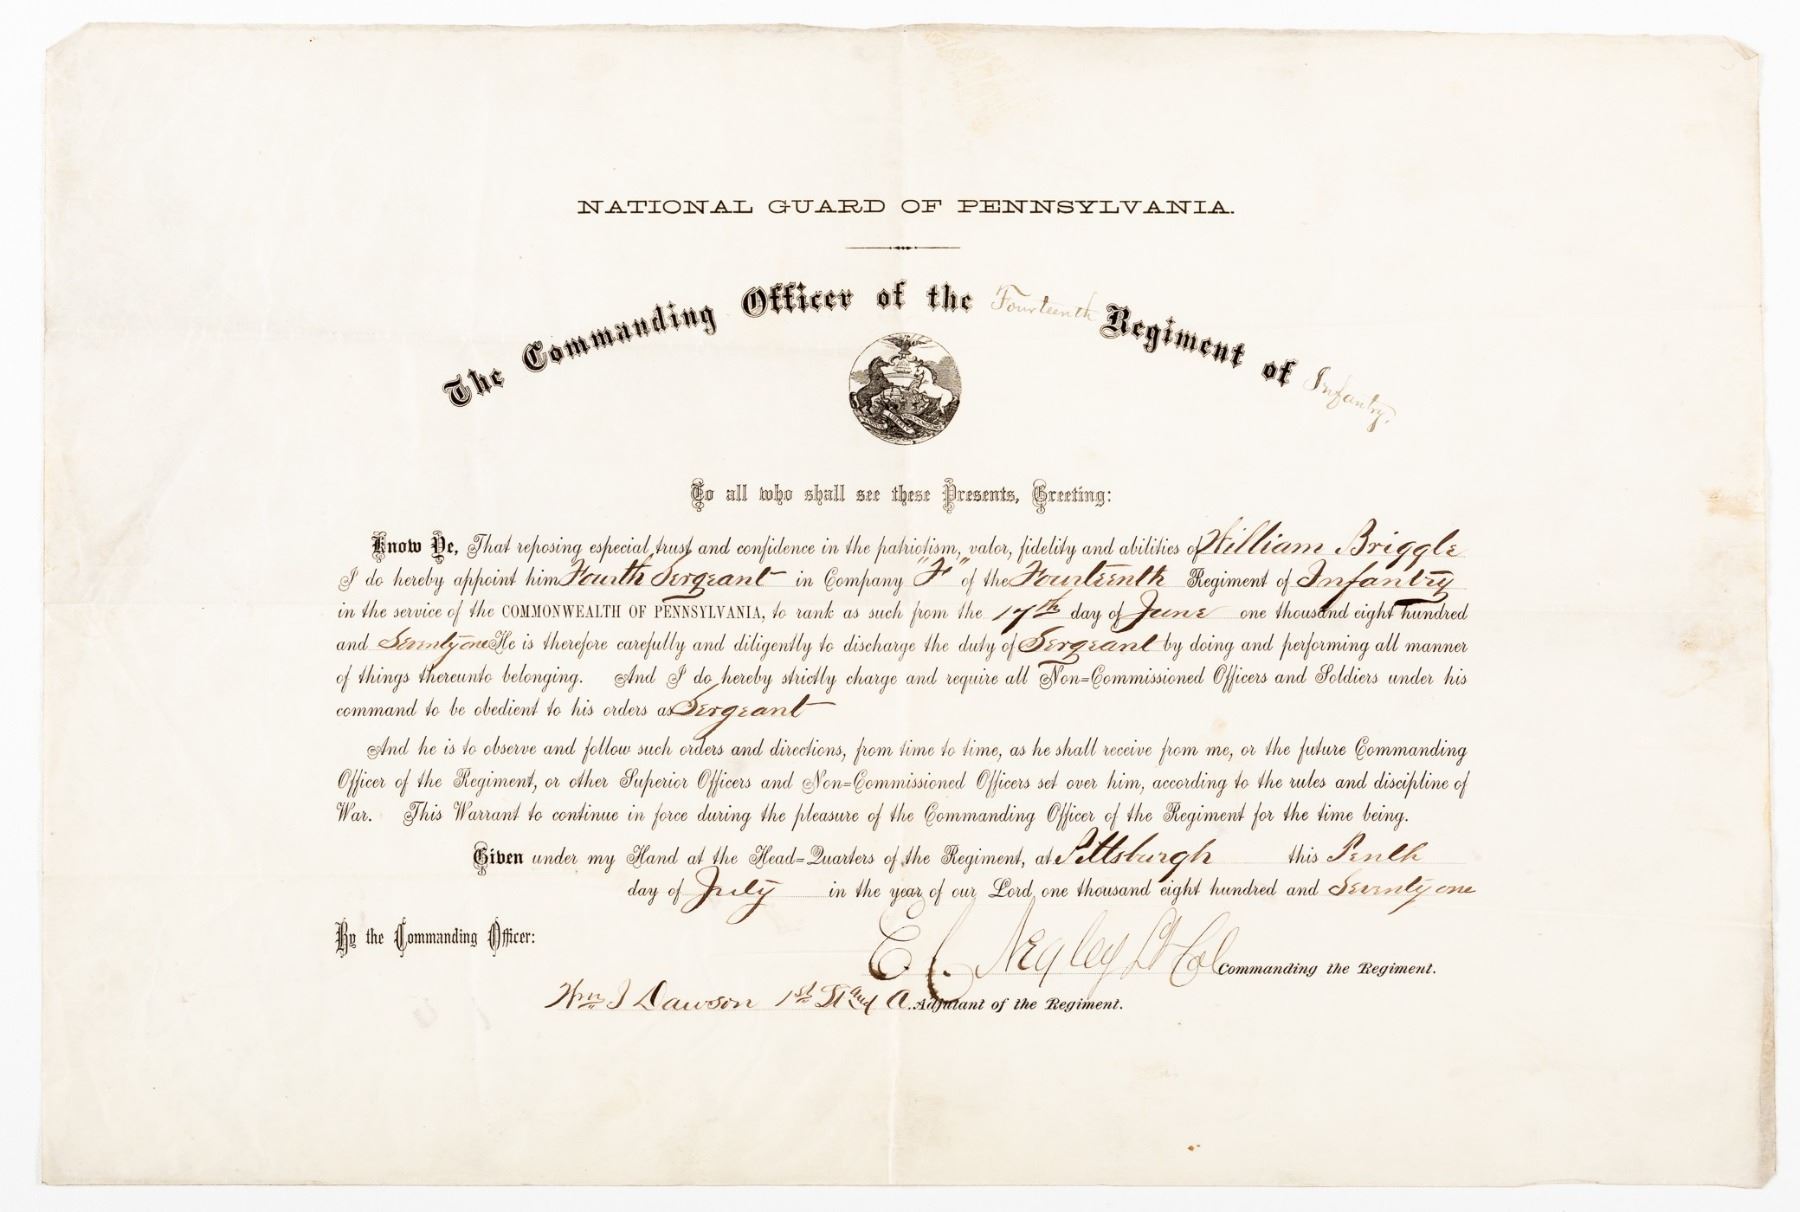 NATIONAL GUARD OF PENNSYLVANIA.
The Commanding Officer of the Fourteenth Regiment of Infantry.
To all who shall see these Presents, Greeting:
Know Ye, That reposing especial trust and confidence in the patriotism, valor, fidelity and abilities of William Briggle
I do hereby appoint him "Fourth Sergeant in Company "F" of the Fourteenth Regiment of Infantry
in the service of the COMMONWEALTH OF PENNSYLVANIA, to rank as such from the 17th day of June one thousand eight hundred
and Seventy one He is therefore carefully and diligently to discharge the duty of Sergeant by doing and performing all manner
of things thereunto belonging. And I do hereby strictly charge and require all Non=Commissioned Officers and Soldiers under his
command to be obedient to his orders as Sergeant
And he is to observe and follow such orders and directions, from time to time, as he shall receive from me, or the future Commanding
Officer of the Regiment, or other Superior Officers and Non=Commissioned Officers set over him, according to the rules and discipline of
War. This Warrant to continue in force during the pleasure of the Commanding Officer of the Regiment for the time being.
Given under my Hand at the Head=Quarters of the Regiment, at Pittsburgh this Tenth
day of July in the year of our Lord one thousand eight hundred and Seventy one
By the Commanding Officer:
E. Negley Lt Col Commanding the Regiment.
Wm J Dawson 1st Lt and A. Adjutant of the Regiment.